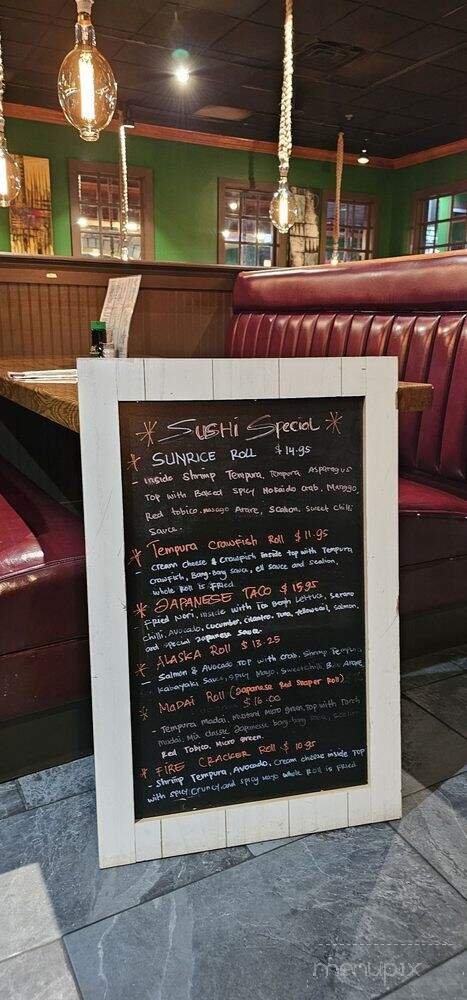 * Sushi Special *
* SUNRICE ROLL $14.95
- inside Shrimp Tempura, Tempura Asparagus
Top with Baked Spicy Hokaido crab, Manggo,
Red tobico, masago Arare, Scalion, sweet chili
Sauce.
* Tempura Crowfish Roll $11.95
- cream cheese & crowfish inside top with Tempura
crowfish, Bang-bang sauce, ell sauce and scalion,
whole Roll is Fried.
* JAPANESE TACO $15.95
- Fried Nori, inside with Lettuce, Serano
Chilli, Avocado, cucumber, cilantro, Tuna, Yellowtail, Salmon,
and special Japanese sauce
* ALASKA ROLL $13.25
- Salmon & Avocado Top with crab, Shrimp Tempura,
Kabayaki Sauce, Spicy Mayo, Sweet Chili Arare
* MaDAI Roll (Japanese Red Snaper Roll)
$16.00
- Tempura Madai, Mustard micro green, top with Torch
Madai, Mix classic Japanese bang bang Scalion
Red Tobico, Micro green.
* FIRE CRACKER ROLL $10.95
- Shrimp Tempura, Avocado, Cream cheese inside Top
with spicy Cruncy and spicy mayo whole Roll is Fried
menupix